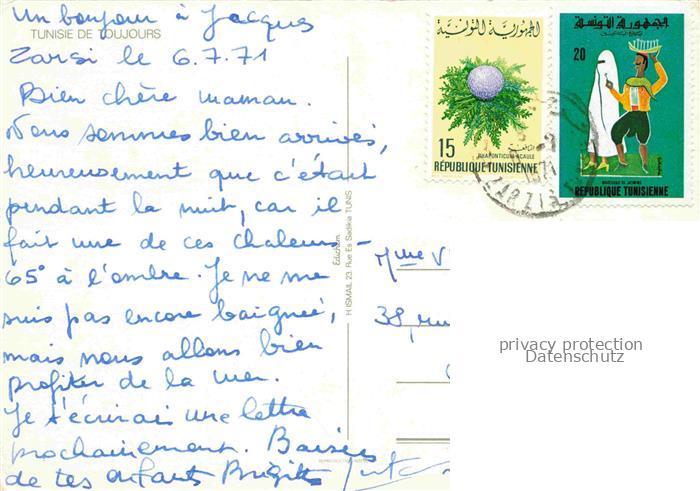 un bonjour à Jacques
TUNISIE DE TOUJOURS
Zarsi le 6.7.71
Bien chère maman.
Nous sommes bien arrivés,
heureusement que c'était
pendant la nuit, car il
fait une de ces chaleurs -
65° à l'ombre. Je ne me
suis pas encore baignée,
mais nous allons bien
profiter de la mer.
Je t'écrirai une lettre
prochainement. Baisers
de tes enfants Brigitte
H ISMAIL 23, Rue Es Sadikia TUNIS
الجمهورية التونسية
15
RHAPONTICUM ACAULE
REPUBLIQUE TUNISIENNE
الجمهورية التونسية
20
MARCHAND DE JASMINS
REPUBLIQUE TUNISIENNE
ZARZIS
Mme V
38, rue
privacy protection
Datenschutz